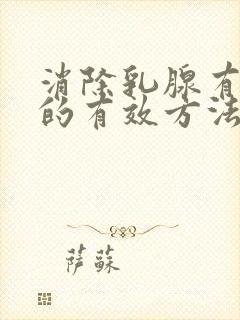 消除乳腺有
的有效方法
萨蘇